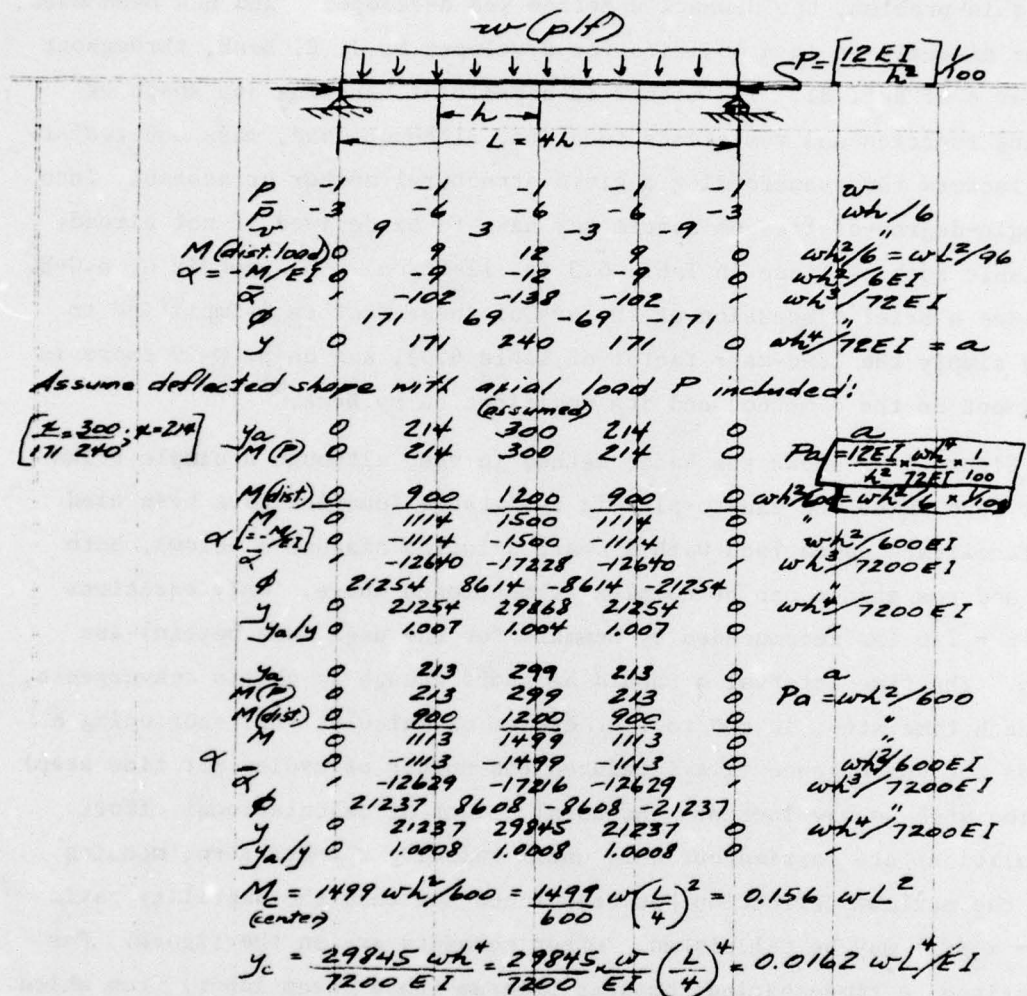 w (plf)
P = [12EI/h²] 1/100
h
L = 4h
p -1 -1 -1 -1 -1 w
p̄ -3 -6 -6 -6 -3 wh/6
v 9 3 -3 -9 "
M (dist. load) 0 9 12 9 0 wh²/6 = wL²/96
α = -M/EI 0 -9 -12 -9 0 wh²/6EI
ᾱ -102 -138 -102 wh³/72EI
ϕ 171 69 -69 -171 "
y 0 171 240 171 0 wh⁴/72EI = a
Assume deflected shape with axial load P included!
(assumed)
[x/171 = 300/240; x = 214] ya 0 214 300 214 0 a
M (P) 0 214 300 214 0 Pa = 12EI/h² × wh⁴/72EI × 1/100
M (dist) 0 900 1200 900 0 wh²/600 = wh²/6 × 1/100
M 0 1114 1500 1114 0 "
α [= -M/EI] 0 -1114 -1500 -1114 0 wh²/600EI
ᾱ -12640 -17228 -12640 wh³/7200EI
ϕ 21254 8614 -8614 -21254 "
y 0 21254 29868 21254 0 wh⁴/7200EI
ya/y 0 1.007 1.004 1.007 0
ya 0 213 299 213 0 a
M (P) 0 213 299 213 0 Pa = wh²/600
M (dist) 0 900 1200 900 0 "
M 0 1113 1499 1113 0 "
α 0 -1113 -1499 -1113 0 wh²/600EI
ᾱ -12629 -17216 -12629 wh³/7200EI
ϕ 21237 8608 -8608 -21237 "
y 0 21237 29845 21237 0 wh⁴/7200EI
ya/y 0 1.0008 1.0008 1.0008 0
Mc = 1499 wh²/600 = 1499/600 w (L/4)² = 0.156 wL²
(center)
yc = 29845 wh⁴/7200 EI = 29845/7200 × w/EI (L/4)⁴ = 0.0162 wL⁴/EI